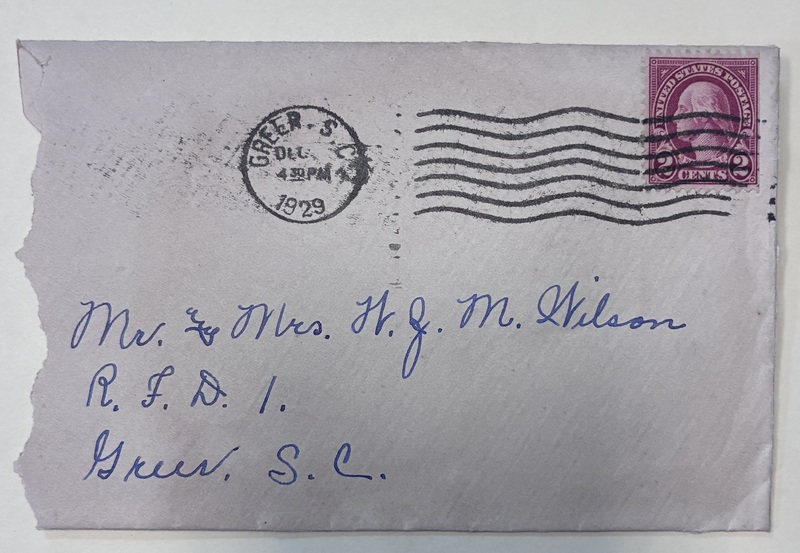 GREER. S.C.
DEC
4 30 PM
1929
UNITED STATES POSTAGE
2 CENTS 2
Mr. & Mrs. W. J. M. Wilson
R. F. D. 1.
Greer. S. C.